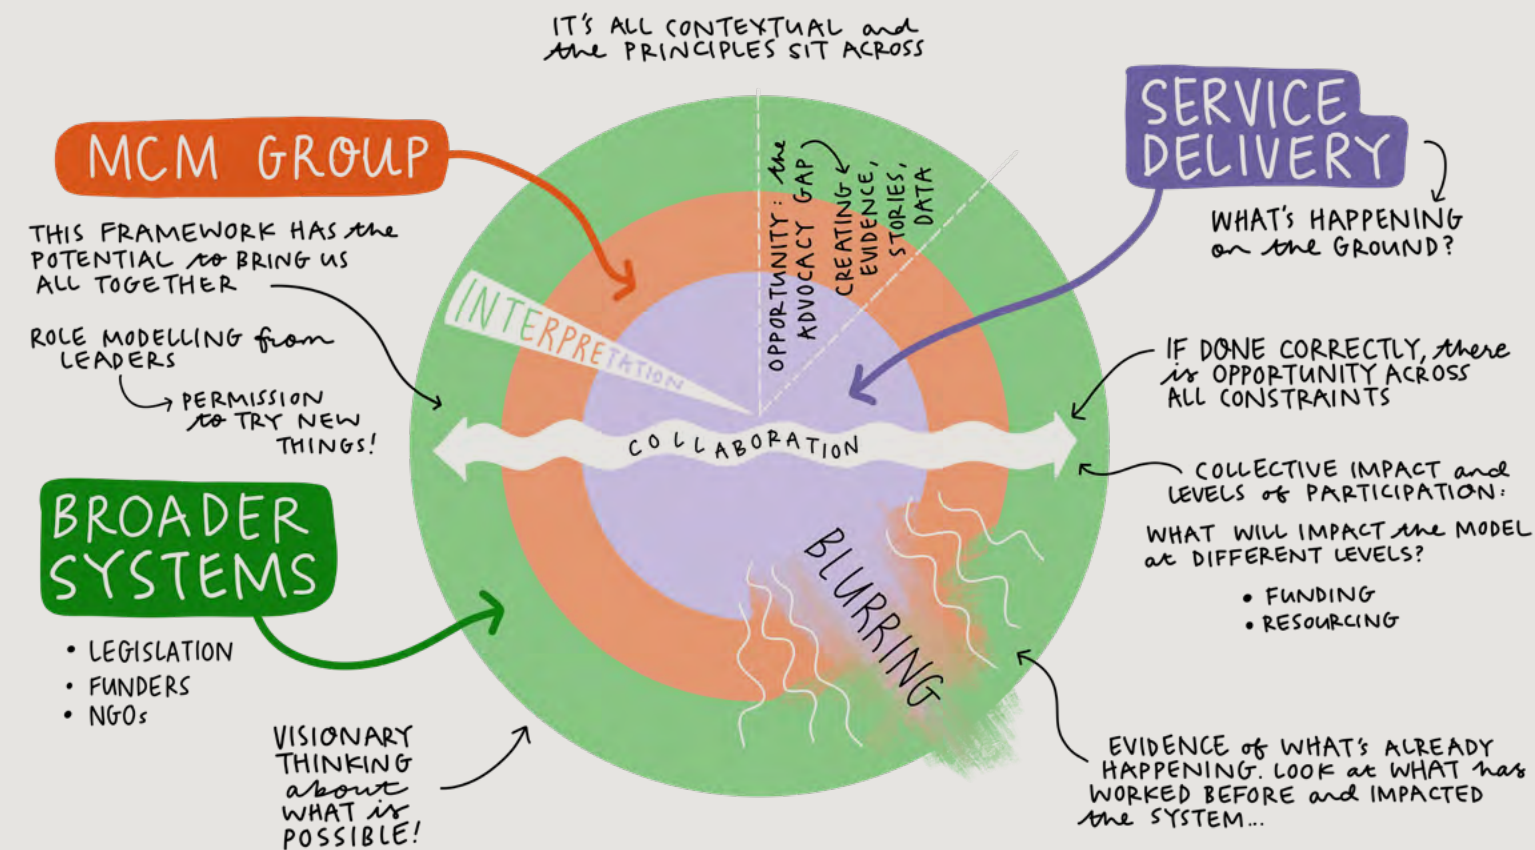 IT'S ALL CONTEXTUAL and
the PRINCIPLES SIT ACROSS
MCM GROUP
THIS FRAMEWORK HAS the
POTENTIAL to BRING US
ALL TOGETHER
ROLE MODELLING from
LEADERS
PERMISSION
to TRY NEW
THINGS!
BROADER
SYSTEMS
• LEGISLATION
• FUNDERS
• NGOs
VISIONARY
THINKING
about
WHAT is
POSSIBLE!
INTERPRETATION
OPPORTUNITY: the
ADVOCACY GAP
CREATING
EVIDENCE,
STORIES,
DATA
COLLABORATION
BLURRING
SERVICE
DELIVERY
WHAT'S HAPPENING
on the GROUND?
IF DONE CORRECTLY, there
is OPPORTUNITY ACROSS
ALL CONSTRAINTS
COLLECTIVE IMPACT and
LEVELS of PARTICIPATION:
WHAT WILL IMPACT the MODEL
at DIFFERENT LEVELS?
• FUNDING
• RESOURCING
EVIDENCE of WHAT'S ALREADY
HAPPENING. LOOK at WHAT has
WORKED BEFORE and IMPACTED
the SYSTEM...